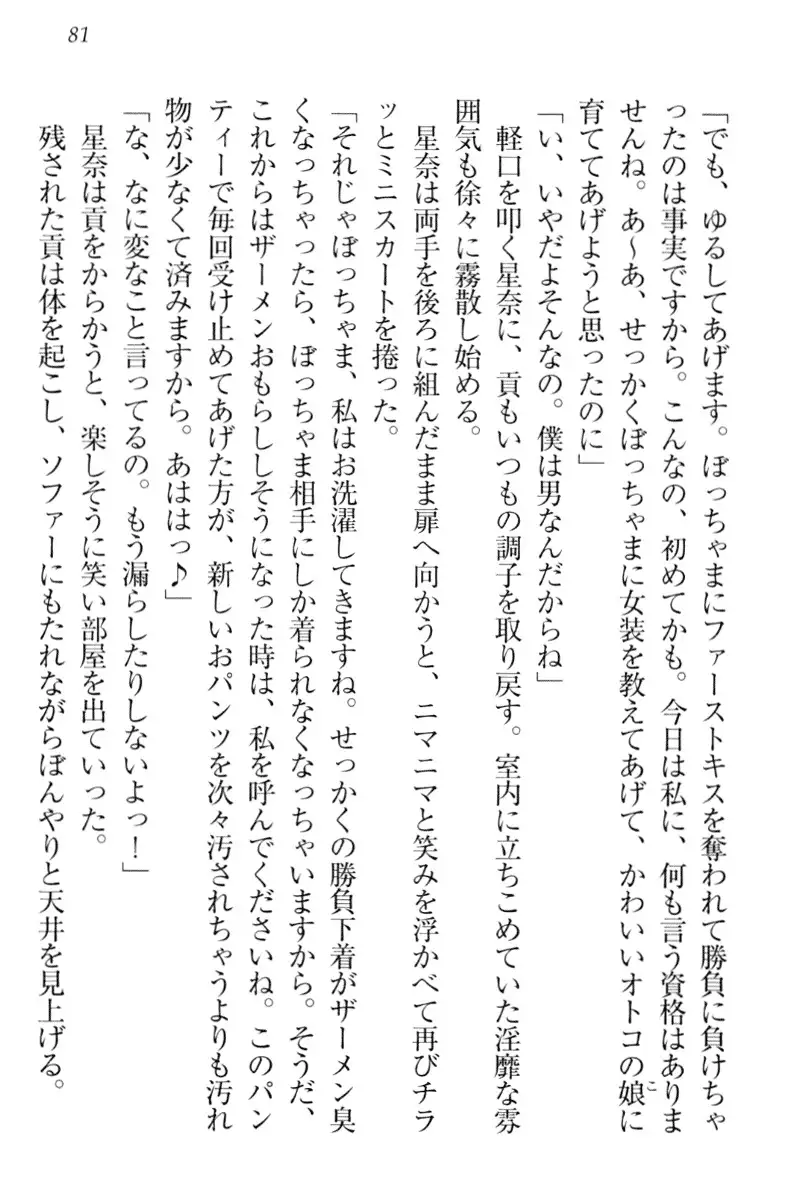 81
「でも、ゆるしてあげます。ぼっちゃまにファーストキスを奪われて勝負に負けちゃ
ったのは事実ですから。こんなの、初めてかも。今日は私に、何も言う資格はありま
せんね。あ～あ、せっかくぼっちゃまに女装を教えてあげて、かわいいオトコの娘に
育ててあげようと思ったのに」
「い、いやだよそんなの。僕は男なんだからね」
軽口を叩く星奈に、貢もいつもの調子を取り戻す。室内に立ちこめていた淫靡な雰
囲気も徐々に霧散し始める。
星奈は両手を後ろに組んだまま扉へ向かうと、ニマニマと笑みを浮かべて再びチラ
ッとミニスカートを捲った。
「それじゃぼっちゃま、私はお洗濯してきますね。せっかくの勝負下着がザーメン臭
くなっちゃったら、ぼっちゃま相手にしか着られなくなっちゃいますから。そうだ、
これからはザーメンおもらししそうになった時は、私を呼んでくださいね。このパン
ティーで毎回受け止めてあげた方が、新しいおパンツを次々汚されちゃうよりも汚れ
物が少なくて済みますから。あははっ♪」
「な、なに変なこと言ってるの。もう漏らしたりしないよっ！」
星奈は貢をからかうと、楽しそうに笑い部屋を出ていった。
残された貢は体を起こし、ソファーにもたれながらぼんやりと天井を見上げる。